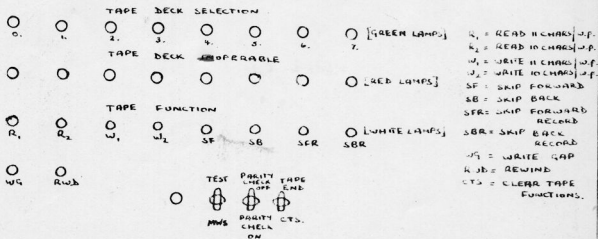 TAPE DECK SELECTION
0. 1. 2. 3. 4. 5. 6. 7. [GREEN LAMPS]
TAPE DECK OPERABLE
[RED LAMPS]
TAPE FUNCTION
R1 R2 W1 W2 SF SB SFR SBR [WHITE LAMPS]
WG RWD
TEST PARITY CHECK OFF TAPE END
MWS PARITY CHECK ON CTS.
R1 = READ 11 CHARS/W.P.
R2 = READ 10 CHARS/W.P.
W1 = WRITE 11 CHARS/W.P.
W2 = WRITE 10 CHARS/W.P.
SF = SKIP FORWARD
SB = SKIP BACK
SFR = SKIP FORWARD
RECORD
SBR = SKIP BACK
RECORD
WG = WRITE GAP
RWD = REWIND
CTS = CLEAR TAPE
FUNCTIONS.